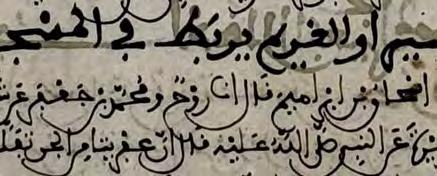 سير او الغريم يربط في المسجد
اسحاق بن ابرهيم قال انا روح ومحمد بن جعفر عن
عن النبي صلى الله عليه قال ان عفريتا من الجن تفلت